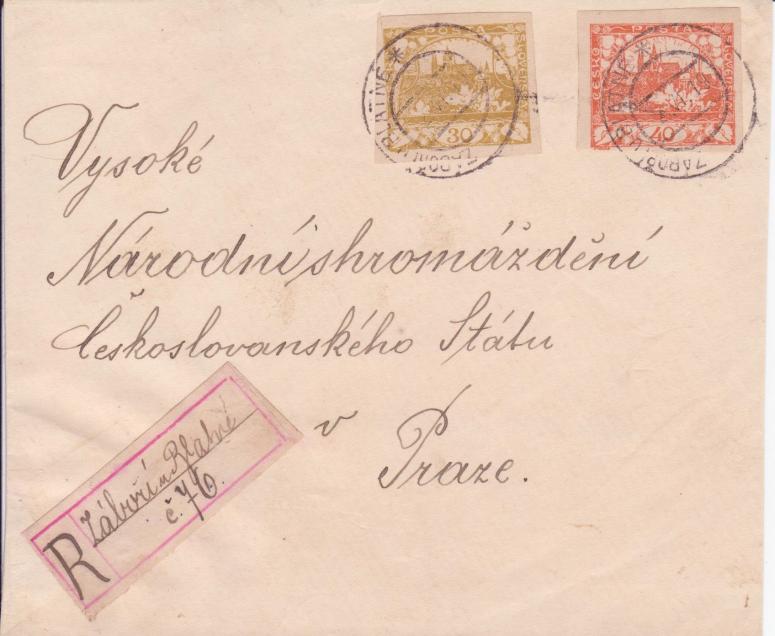 POŠTA
ČESKO
SLOVENSKÁ
30
POŠTA
ČESKO
SLOVENSKÁ
40
Vysoké
Národní shromáždění
Československého Státu
v Praze.
R
Záboří u Blatné
č. 76.